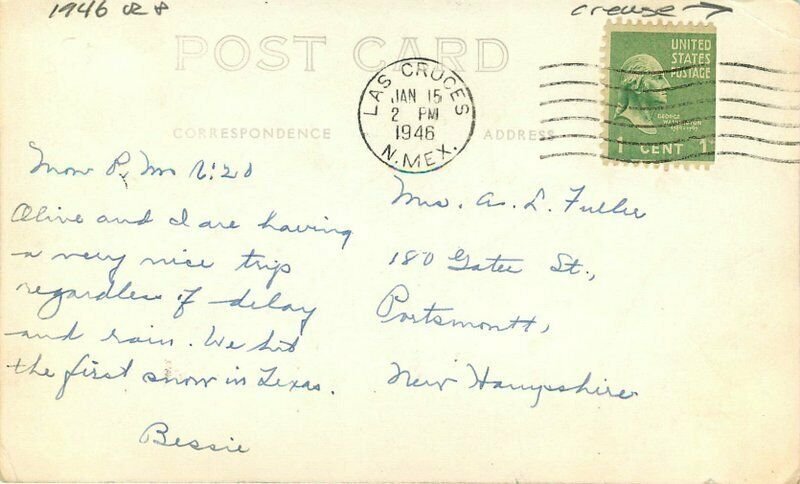 1946
crease →
POST CARD
UNITED
STATES
POSTAGE
GEORGE
WASHINGTON
1 CENT 1
LAS CRUCES
JAN 15
2 PM
1946
N. MEX.
CORRESPONDENCE
ADDRESS
Mon P. M. 1:20
Olive and I are having
a very nice trip
regardless of delay
and rain. We hit
the first snow in Texas.
Bessie
Mrs. A. L. Fuller
180 Gates St.,
Portsmontt,
New Hampshire